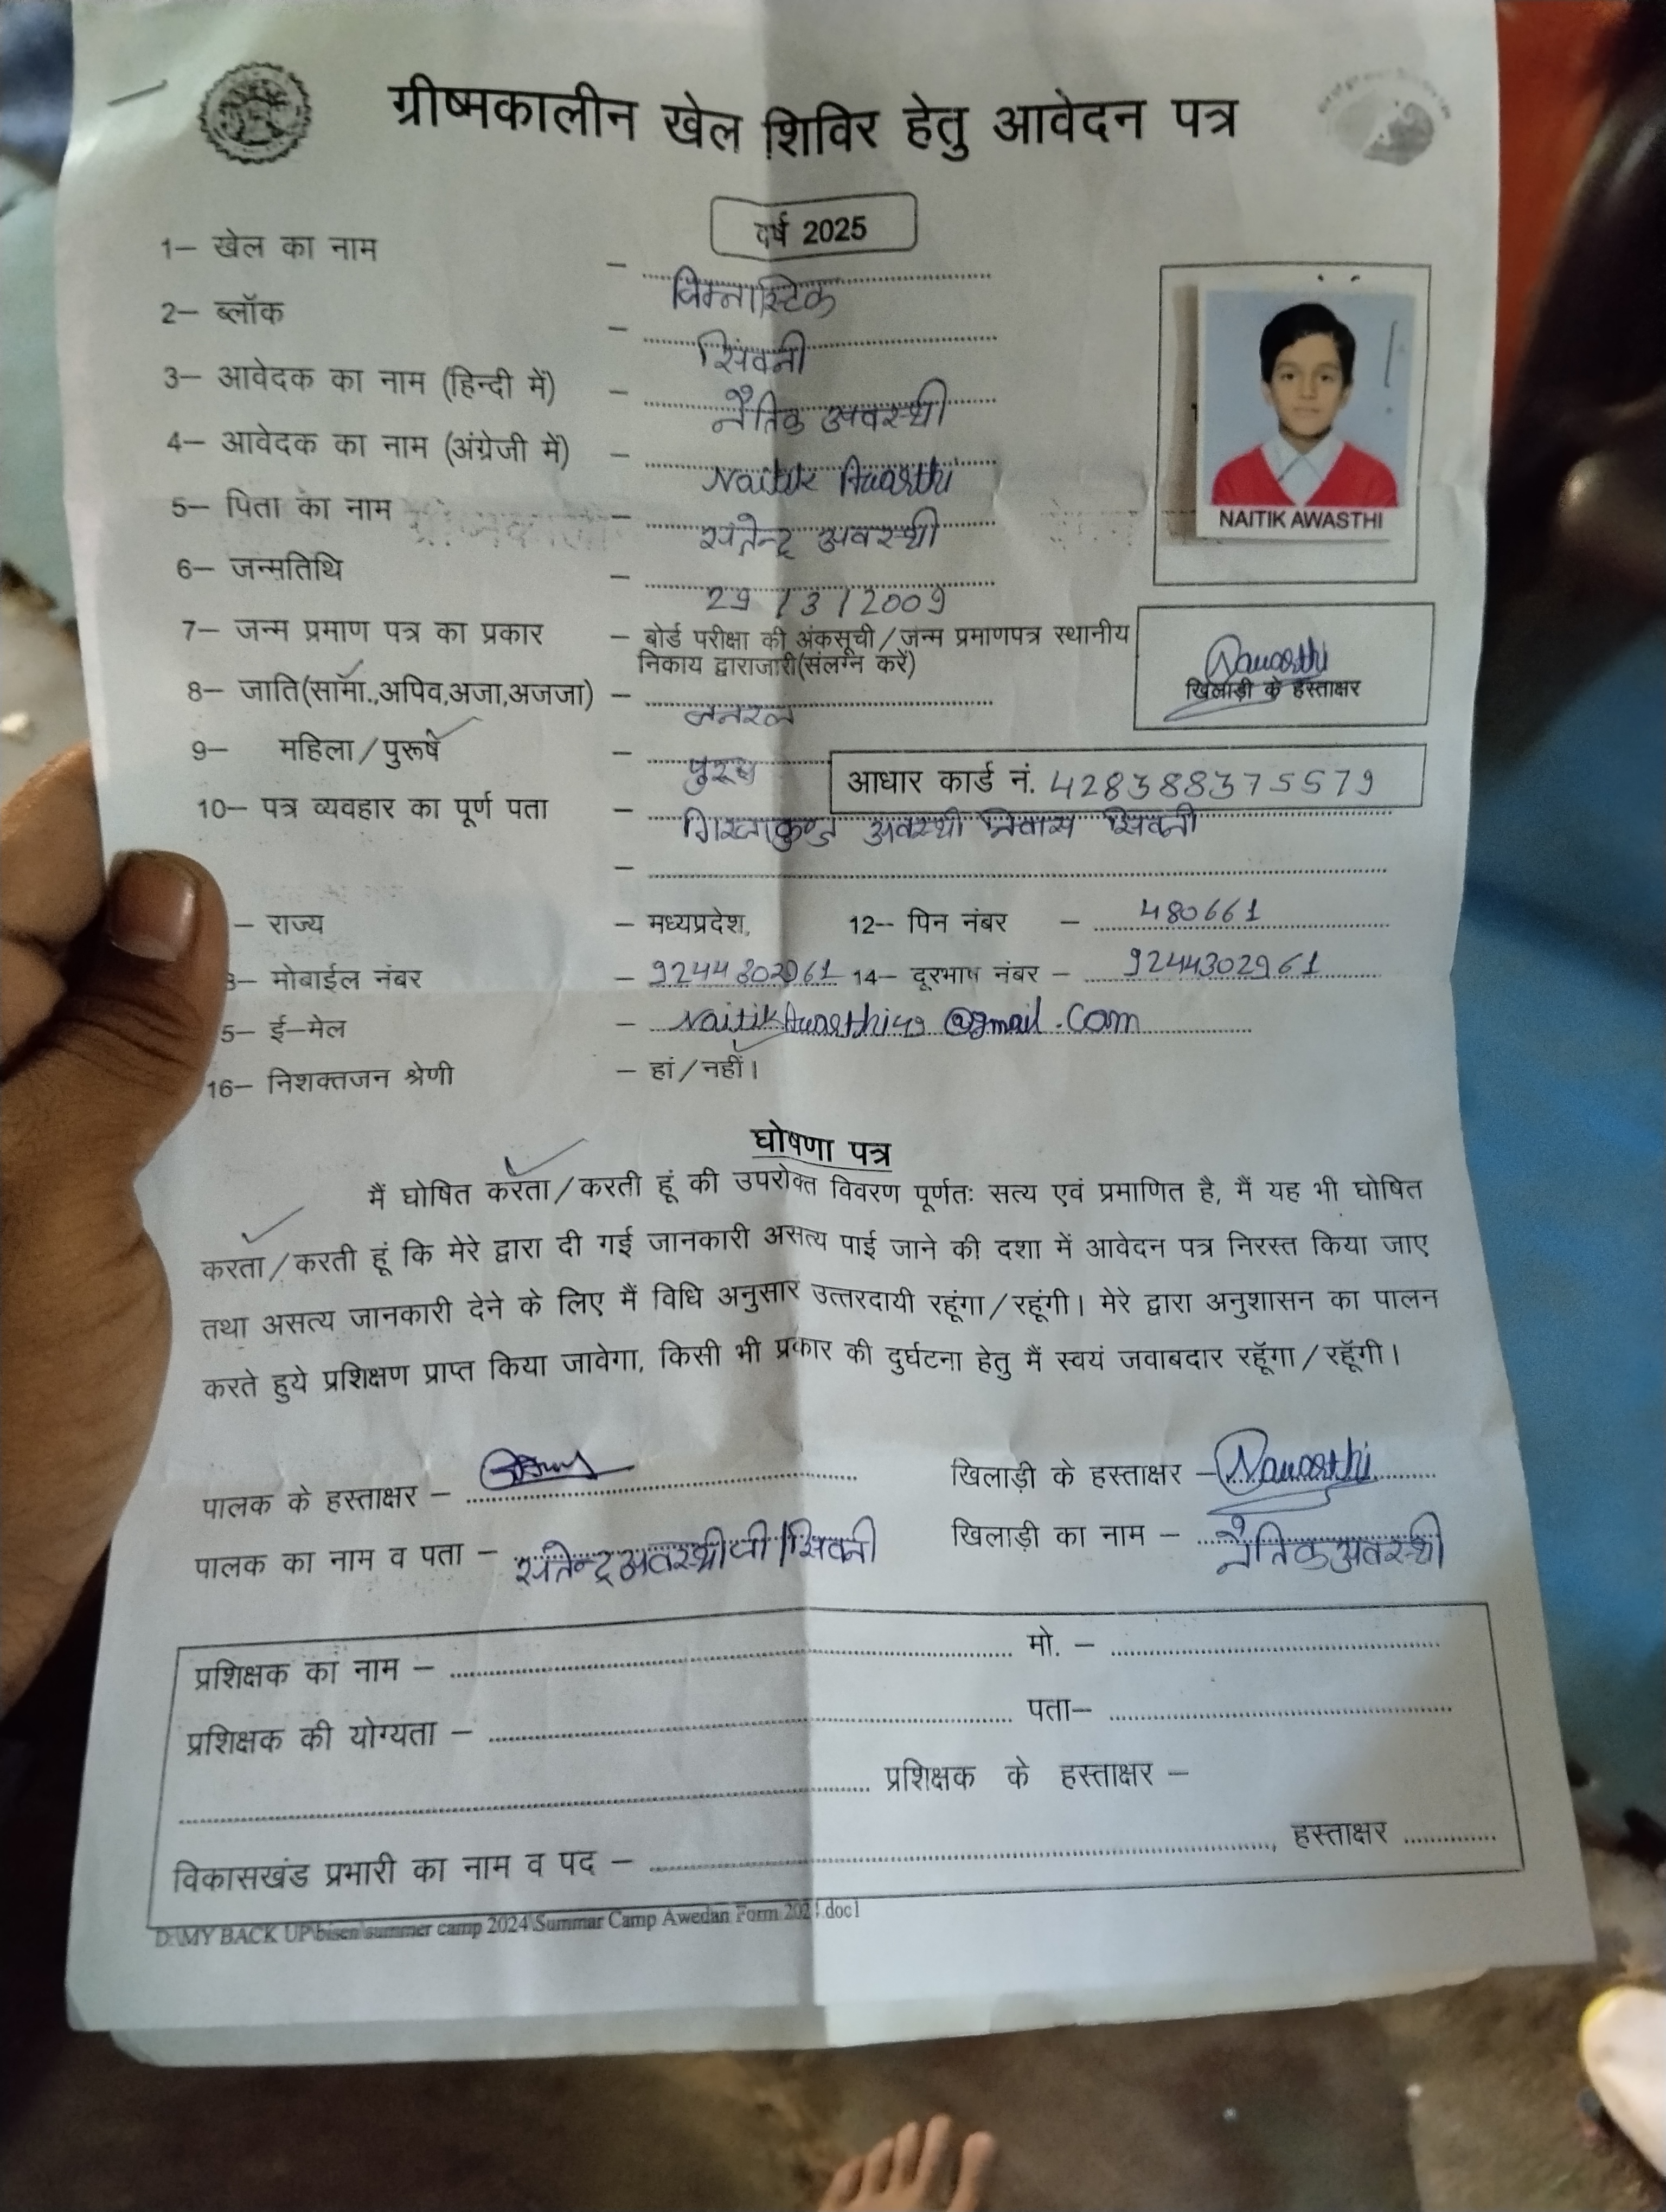 ग्रीष्मकालीन खेल शिविर हेतु आवेदन पत्र
वर्ष 2025
1– खेल का नाम – जिम्नास्टिक
2– ब्लॉक – सिवनी
3– आवेदक का नाम (हिन्दी में) – नैतिक अवस्थी
4– आवेदक का नाम (अंग्रेजी में) – Naitik Awasthi
NAITIK AWASTHI
5– पिता का नाम – सतेन्द्र अवस्थी
6– जन्मतिथि – 29/3/2009
7– जन्म प्रमाण पत्र का प्रकार – बोर्ड परीक्षा की अंकसूची/जन्म प्रमाणपत्र स्थानीय
निकाय द्वाराजारी(संलग्न करें)
Nawasthi
खिलाड़ी के हस्ताक्षर
8– जाति(सामा.,अपिव,अजा,अजजा) – जनरल
9– महिला/पुरूष – पुरूष
आधार कार्ड नं. 428388375579
10– पत्र व्यवहार का पूर्ण पता – अवस्थी निवास सिवनी
– राज्य – मध्यप्रदेश, 12– पिन नंबर – 480661
3– मोबाईल नंबर – 9244302961 14– दूरभाष नंबर – 9244302961
5– ई–मेल – @gmail.com
16– निशक्तजन श्रेणी – हां/नहीं।
घोषणा पत्र
मैं घोषित करता/करती हूं की उपरोक्त विवरण पूर्णतः सत्य एवं प्रमाणित है, मैं यह भी घोषित
करता/करती हूं कि मेरे द्वारा दी गई जानकारी असत्य पाई जाने की दशा में आवेदन पत्र निरस्त किया जाए
तथा असत्य जानकारी देने के लिए मैं विधि अनुसार उत्तरदायी रहूंगा/रहूंगी। मेरे द्वारा अनुशासन का पालन
करते हुये प्रशिक्षण प्राप्त किया जावेगा, किसी भी प्रकार की दुर्घटना हेतु मैं स्वयं जवाबदार रहूँगा/रहूँगी।
पालक के हस्ताक्षर – खिलाड़ी के हस्ताक्षर – Nawasthi
पालक का नाम व पता – सतेन्द्र अवस्थी जी/सिवनी खिलाड़ी का नाम – नैतिक अवस्थी
प्रशिक्षक का नाम – मो. –
प्रशिक्षक की योग्यता – पता–
प्रशिक्षक के हस्ताक्षर –
विकासखंड प्रभारी का नाम व पद – , हस्ताक्षर
D:\MY BACK UP\bisen\summer camp 2024\Summar Camp Awedan Form